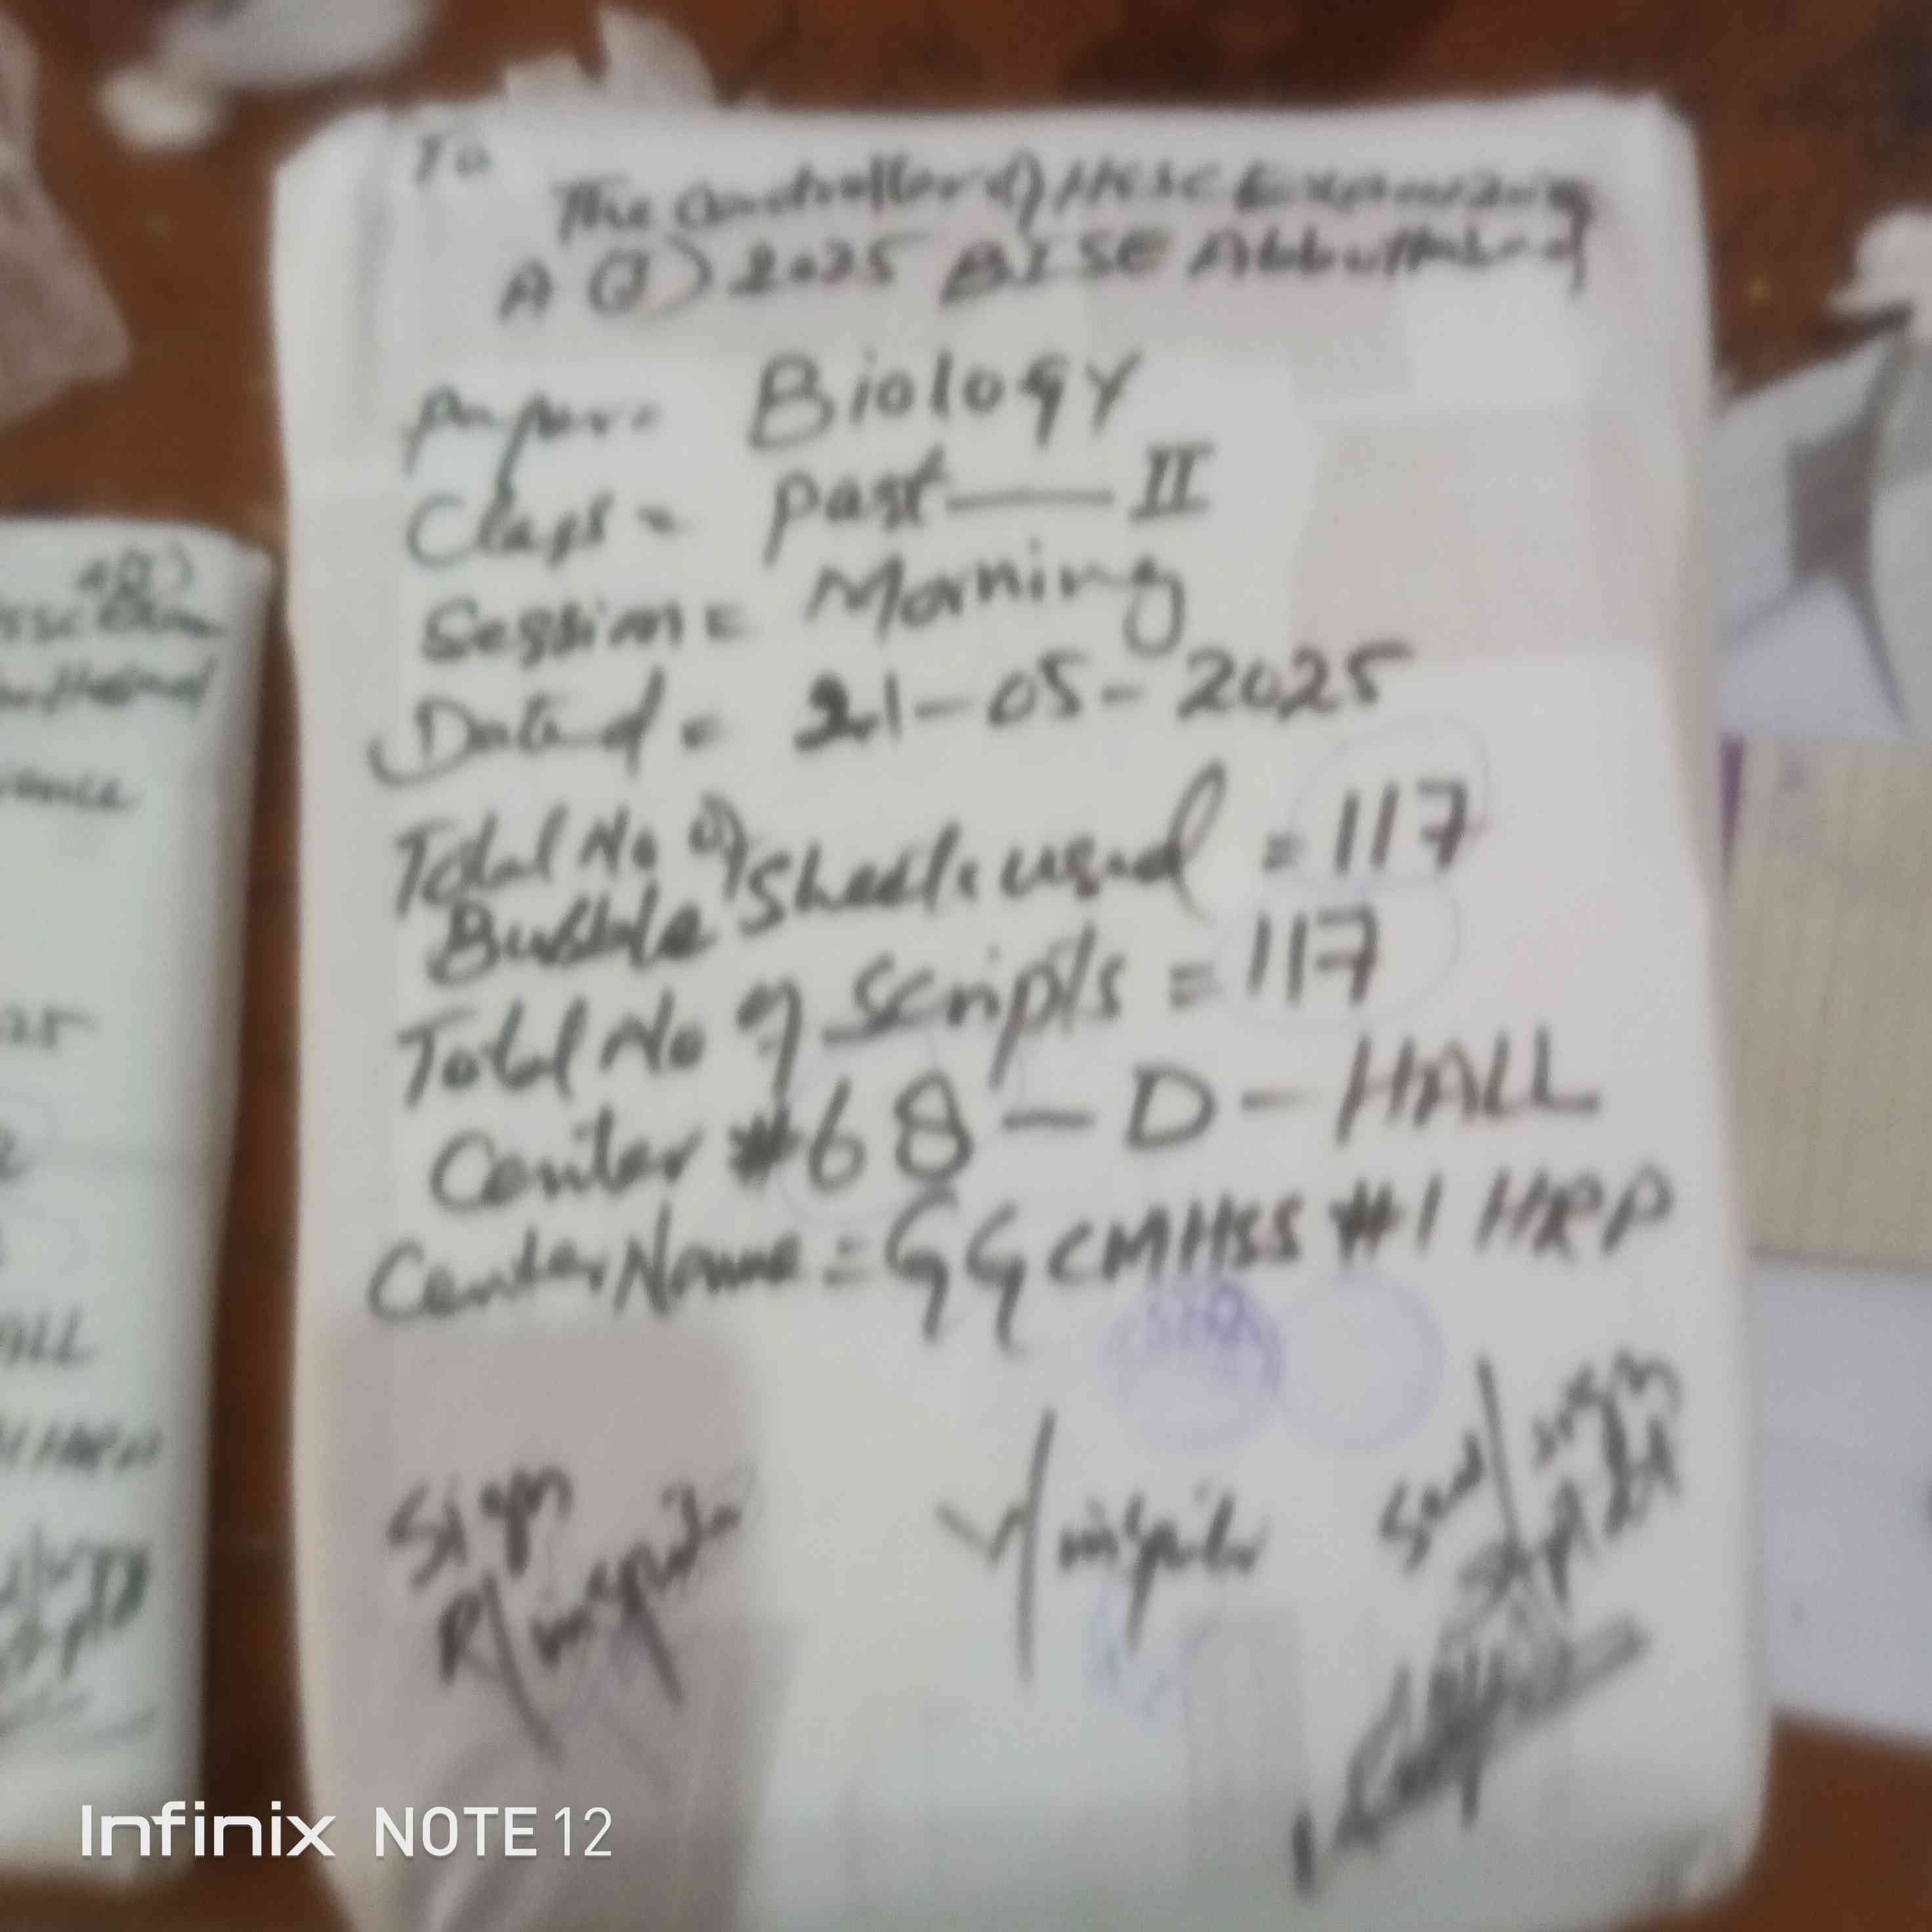 To
The Controller of HSSC Examination
A (I) 2025 BISE Abbottabad
Paper = Biology
Class = Part — II
Session = Morning
Dated = 21-05-2025
Total No of
Bubble Sheets used = 117
Total No of Scripts = 117
Center # 68 — D — HALL
Center Name = GGCMHSS #1 HRP
Sign
R/inspector
25
ALL
#1 HRP
Infinix NOTE 12